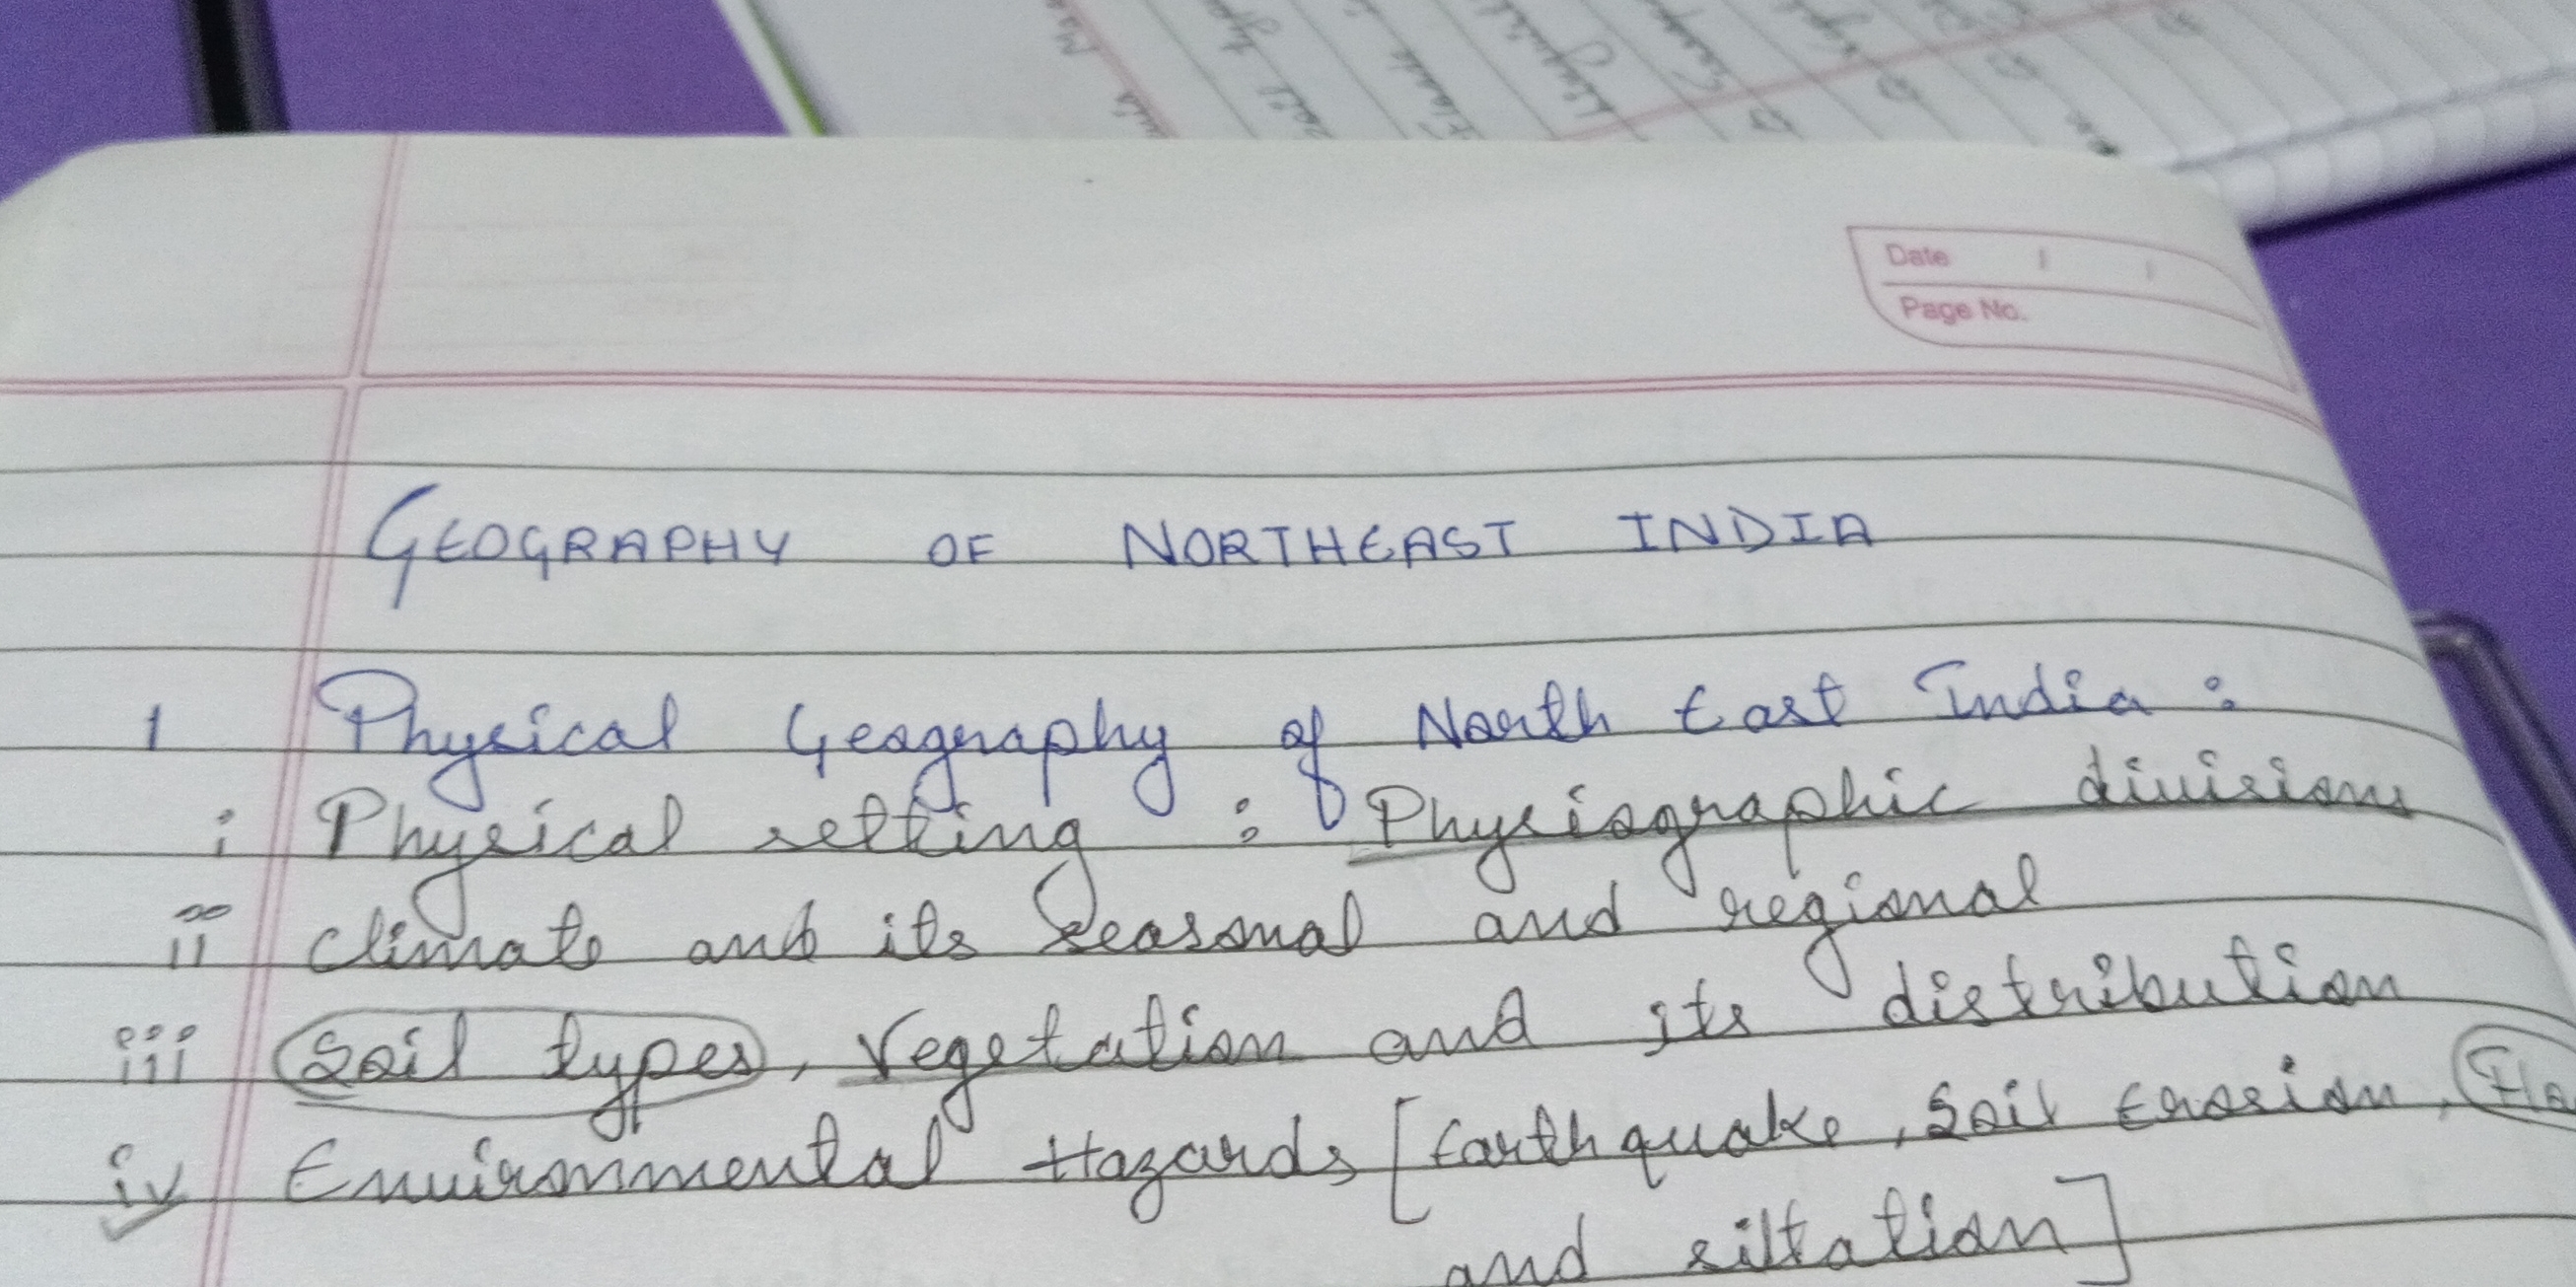 Date / /
Page No.
GEOGRAPHY OF NORTHEAST INDIA
1 Physical Geography of North East India :
i Physical setting : Physiographic divisions
ii climate and its seasonal and regional
iii Soil types, Vegetation and its distribution
iv Environmental Hazards [Earthquake, Soil Erosion,
and siltation]